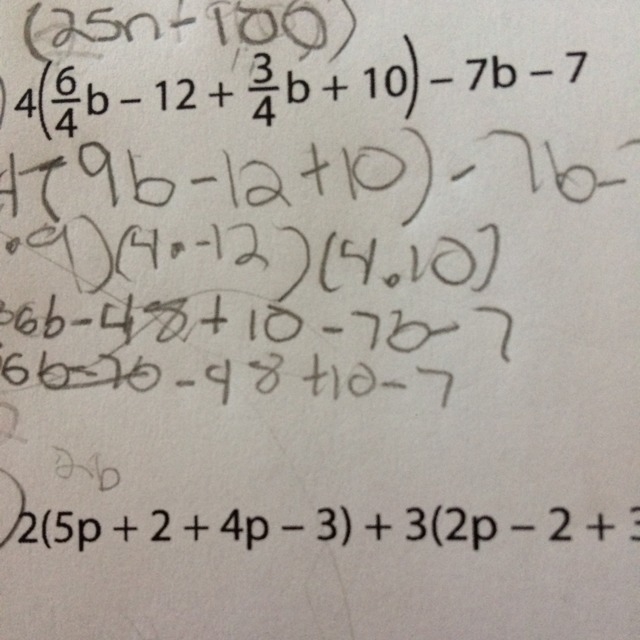 (25n+100)
)4(6/4b − 12 + 3/4b + 10) − 7b − 7
4(9b-12+10)-7b-7
.9)(4.-12)(4.10)
36b-48+10-7b-7
36b-7b-48+10-7
2b
)2(5p + 2 + 4p − 3) + 3(2p − 2 + 3